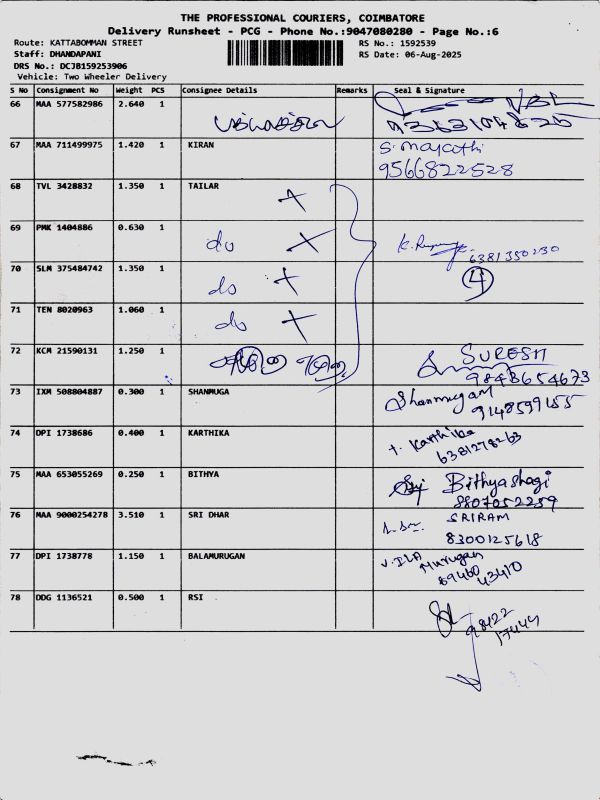 THE PROFESSIONAL COURIERS, COIMBATORE
Delivery Runsheet - PCG - Phone No.:9047080280 - Page No.:6
Route: KATTABOMMAN STREET
RS No.: 1592539
Staff: DHANDAPANI
RS Date: 06-Aug-2025
DRS No.: DCJB159253906
Vehicle: Two Wheeler Delivery
S No Consignment No Weight PCS Consignee Details Remarks Seal & Signature
66 MAA 577582986 2.640 1
67 MAA 711499975 1.420 1 KIRAN
9566822528
68 TVL 3428832 1.350 1 TAILAR
69 PMK 1404886 0.630 1 do
6381350230
70 SLM 375484742 1.350 1 do
4
71 TEN 8020963 1.060 1 do
72 KCM 21590131 1.250 1 SURESH
9843654673
73 IXM 508804887 0.300 1 SHANMUGA Shanmugam
9148599155
74 DPI 1738686 0.400 1 KARTHIKA t. Karthika
6381278263
75 MAA 653055269 0.250 1 BITHYA
8807052259
76 MAA 9000254278 3.510 1 SRI DHAR SRIRAM
8300125618
77 DPI 1738778 1.150 1 BALAMURUGAN Murugan
89460
43410
78 DDG 1136521 0.500 1 RSI
98422
17444